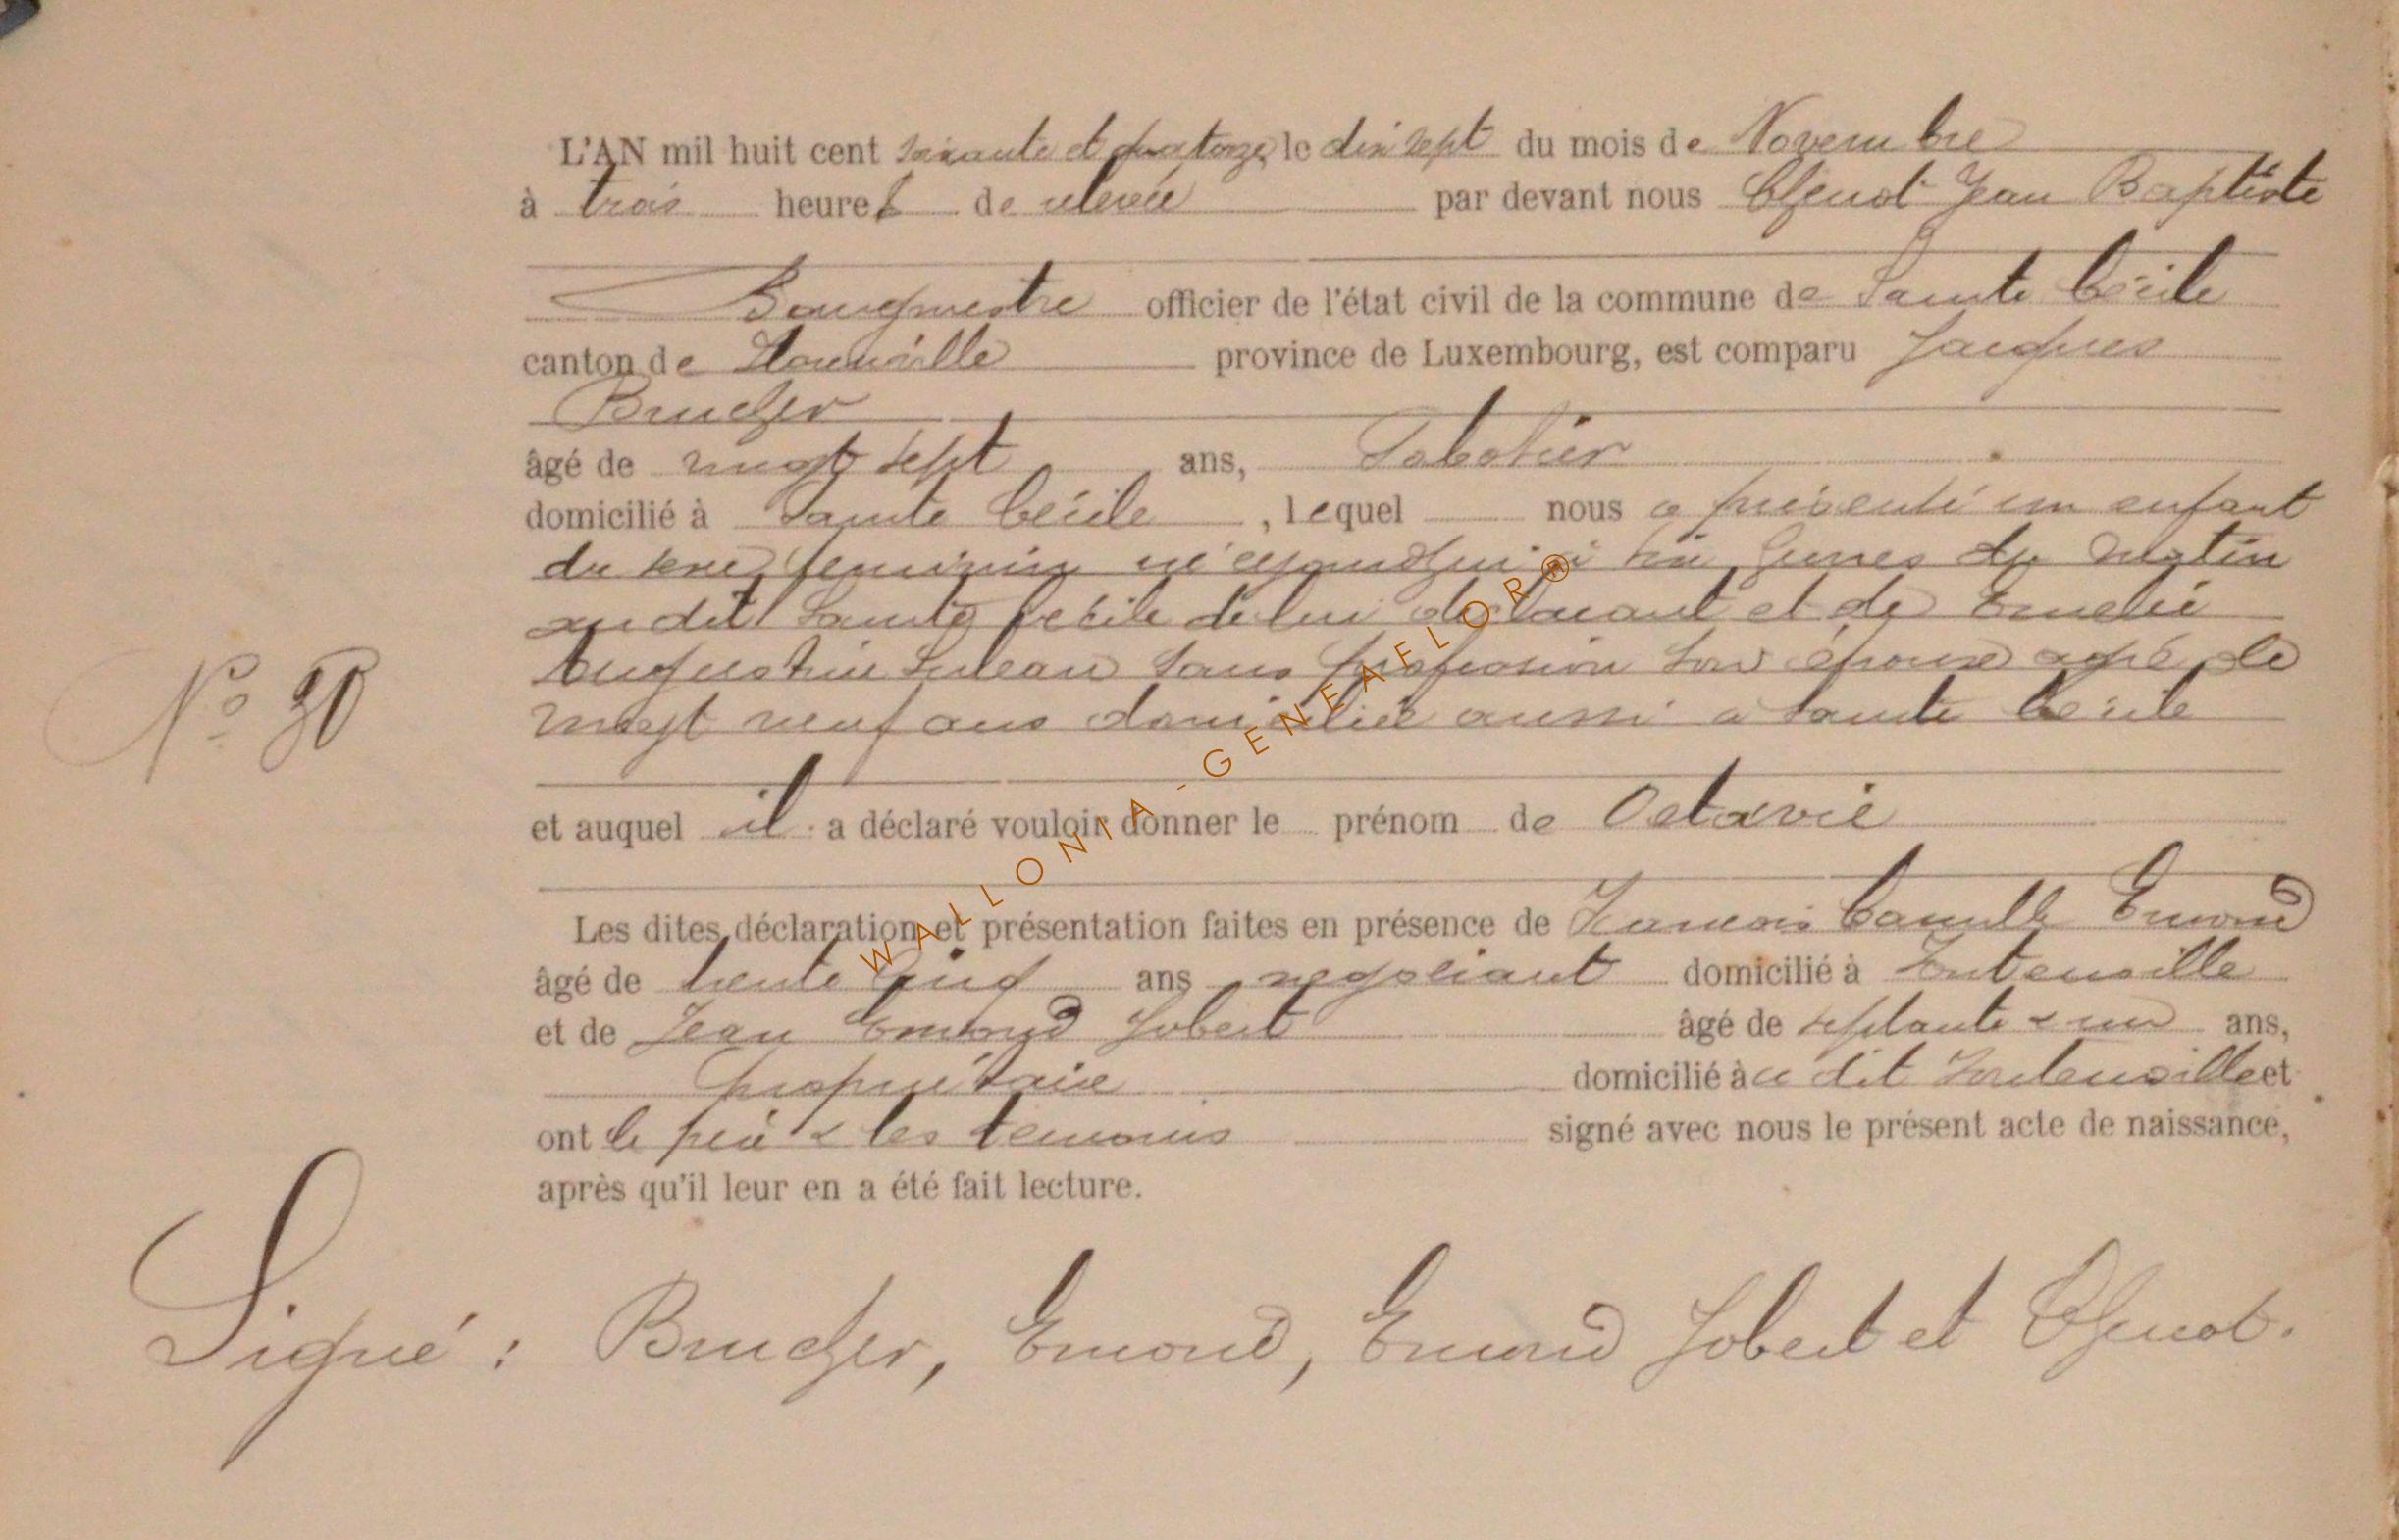 L'AN mil huit cent soixante et quatorze, le dix sept du mois de Novembre
à trois heures de relevée par devant nous Jean Baptiste
Bourgmestre officier de l'état civil de la commune de Sainte Cécile
canton de Florenville province de Luxembourg, est comparu Jacques
Brucher
âgé de vingt sept ans, Sabotier
domicilié à Sainte Cécile, lequel nous a présenté un enfant
du sexe feminin né aujourd'hui à heures du matin
au dit Sainte Cecile de lui declarant et de Emelie
Augustine sans profession son épouse agée de
vingt neuf ans domiciliée aussi a Sainte Cécile
N° 30
et auquel il a déclaré vouloir donner le prénom de Octavie
Les dites déclaration et présentation faites en présence de Francois Camille Emond
âgé de trente ans negociant domicilié à Fontenoille
et de Jean Emond Jobert âgé de septante & un ans,
propriétaire domicilié àu dit Fontenoille et
ont le père & les temoins signé avec nous le présent acte de naissance,
après qu'il leur en a été fait lecture.
Signé : Brucher, Emond, Emond Jobert et
WALLONIA-GENEAFLOR®